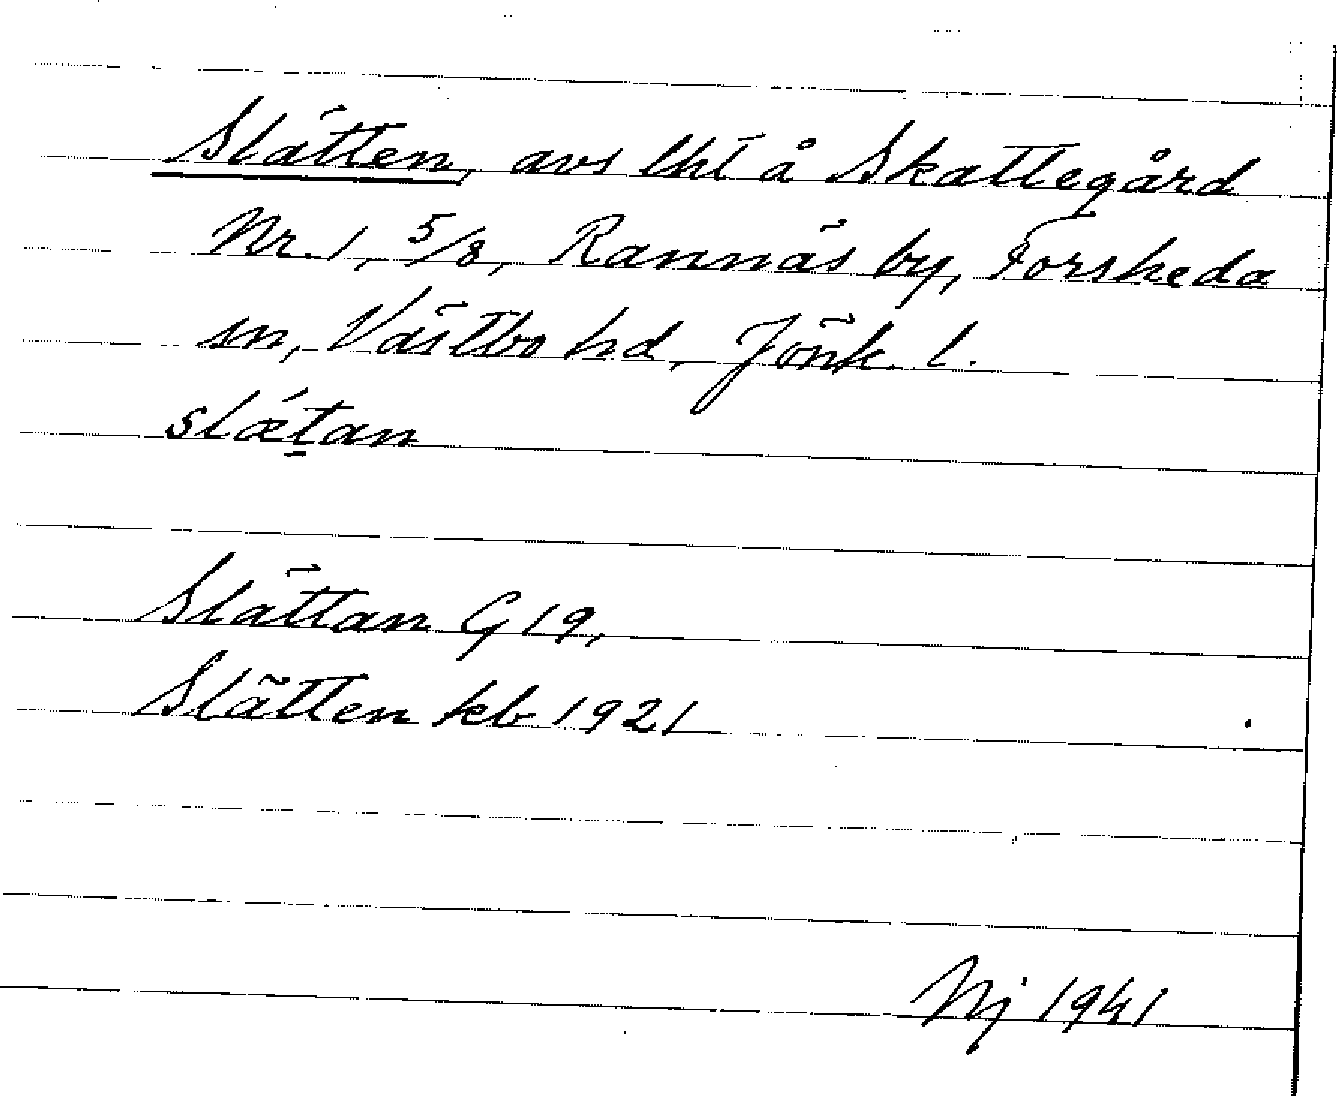 Slätten, avs lht å Skattegård
Nr. 1, 5/8, Rannäs by, Forsheda
sn, Västbo hd, Jönk. l.
slǽt̠an
Slättan G 19,
Slätten kb 1921
Nj 1941